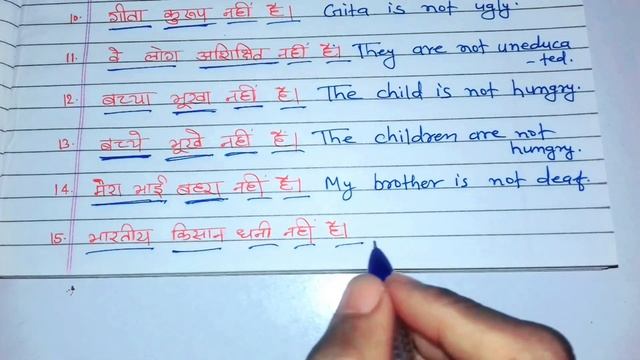 10. गीता कुरूप नहीं है। Gita is not ugly.
11. वे लोग अशिक्षित नहीं हैं। They are not uneduca
-ted.
12. बच्चा भूखा नहीं है। The child is not hungry.
13. बच्चे भूखे नहीं हैं। The children are not
hungry.
14. मेरा भाई बहरा नहीं है। My brother is not deaf.
15. भारतीय किसान धनी नहीं हैं।